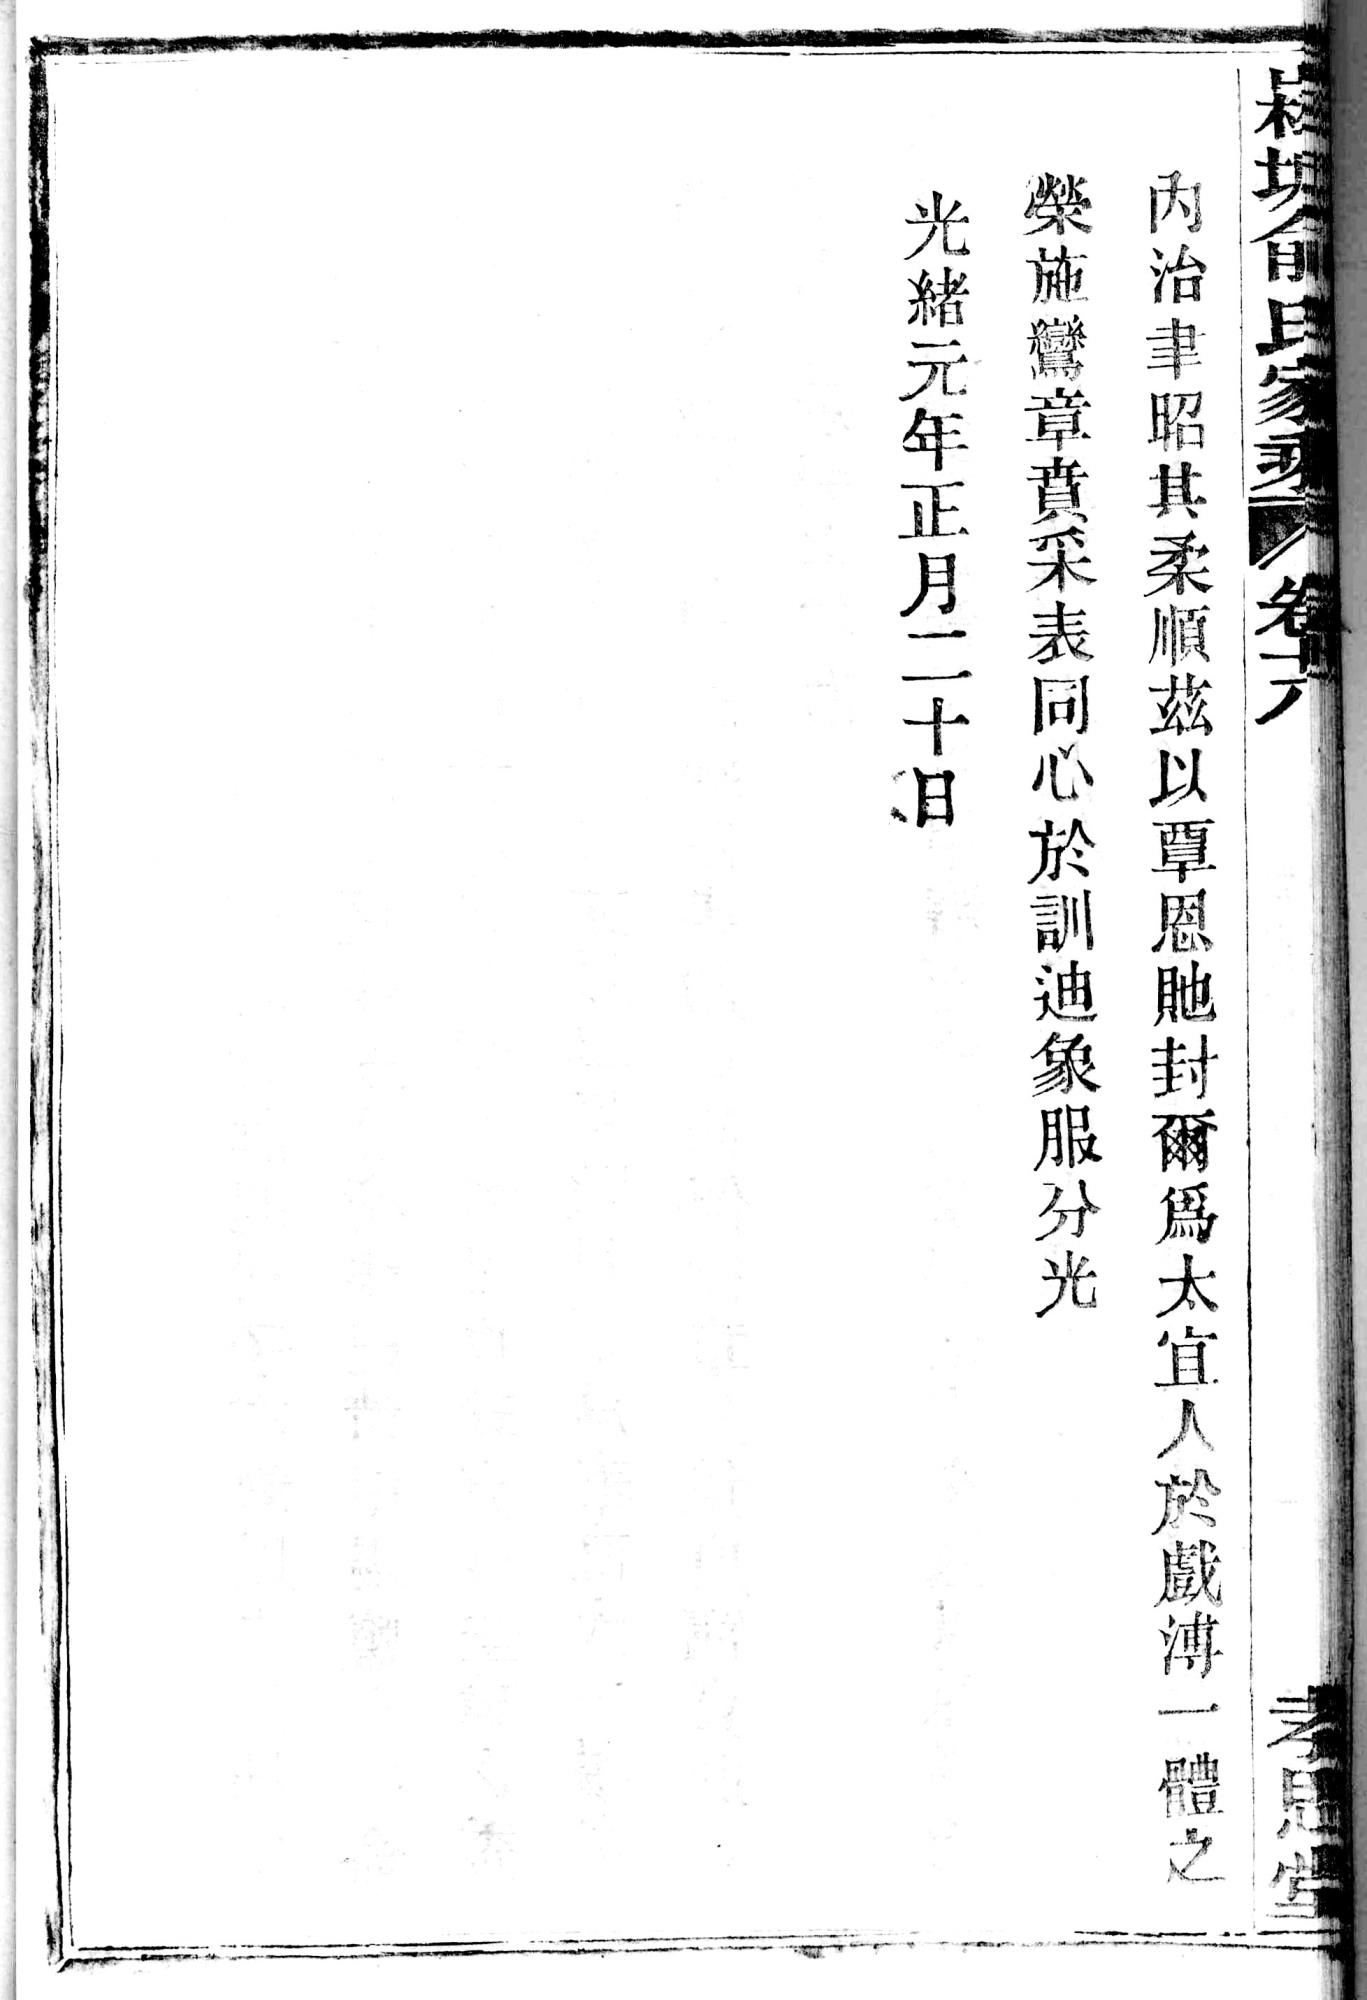 塘俞氏家乘 卷十 孝思堂
內治聿昭其柔順茲以覃恩貤封爾爲太宜人於戲溥一體之
榮施鸞章賁采表同心於訓迪象服分光
光緒元年正月二十日